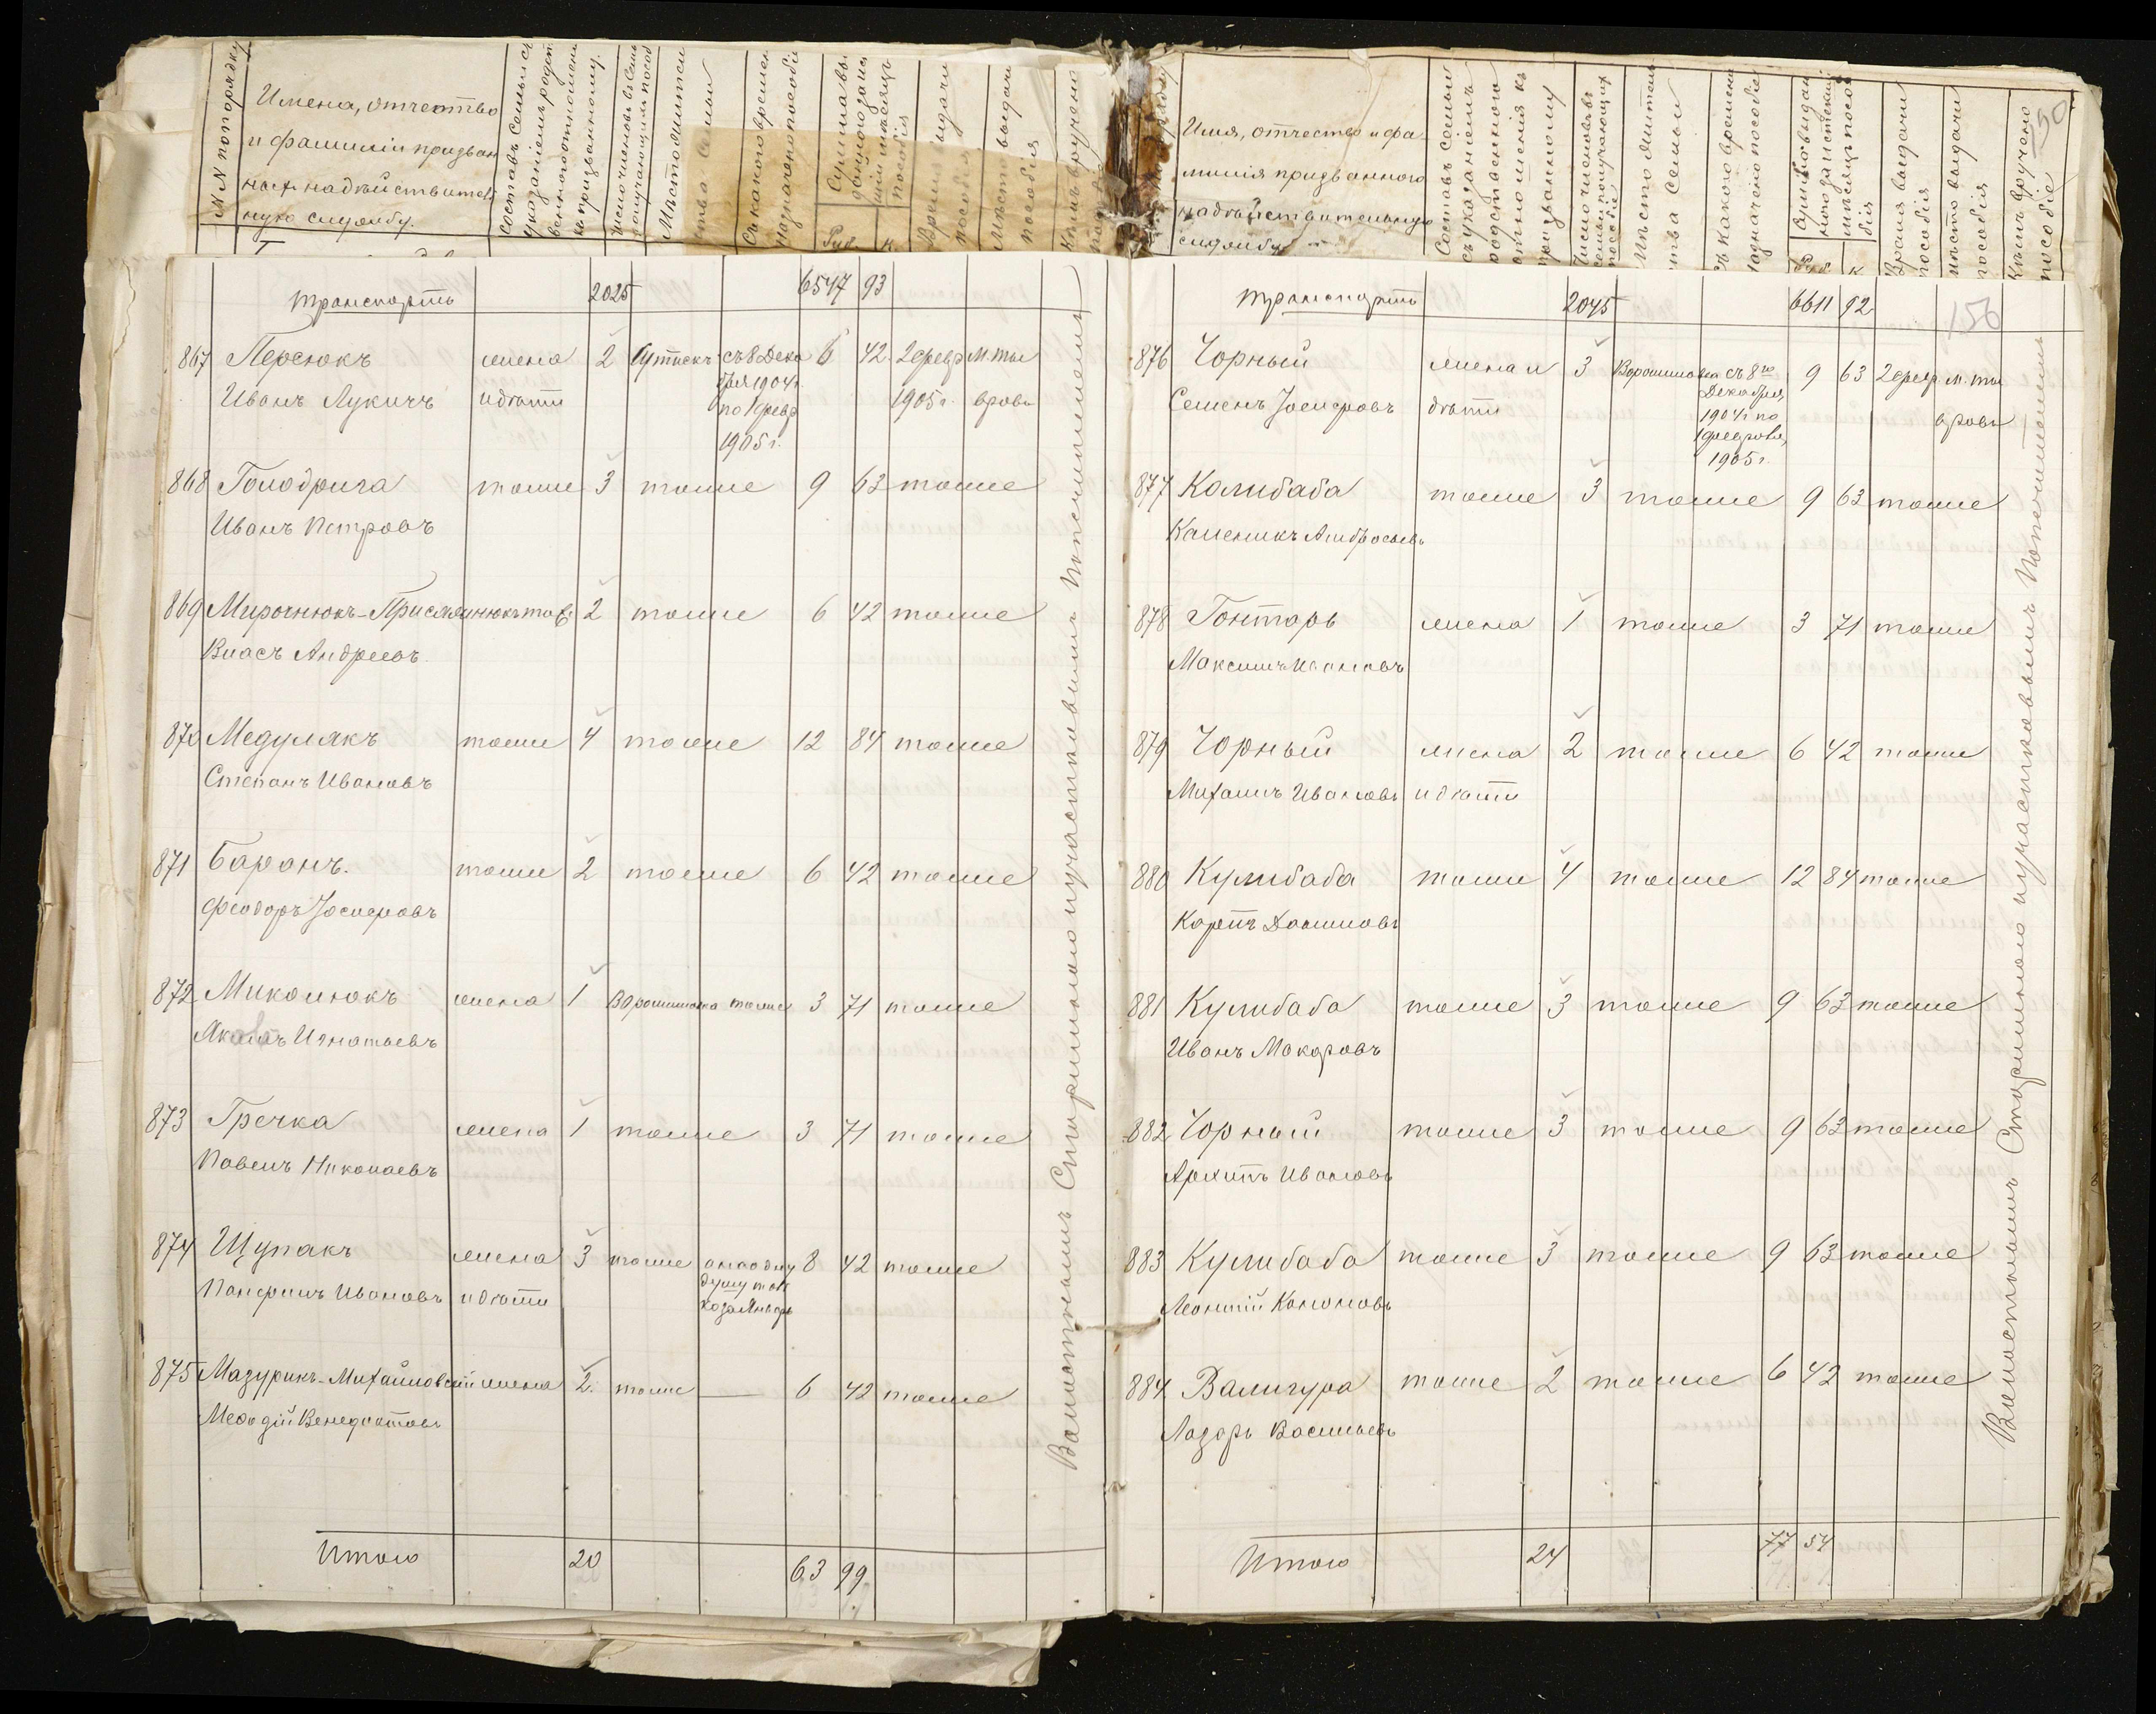 № № по порядку
Имена, отчество
и фамилии призван
ных на действитель
ную службу.
Составъ семьи съ
указаніемъ родст
веннаго отношенія
къ призванному.
Число членовъ семьи
получающихъ пособ
Мѣсто житель
ства семьи
Съ какого времени
назначено пособіе
Сумма вы
даннаго за ис
шій мѣсяцъ
пособія
Руб. К.
Время выдачи
пособія
Мѣсто выдачи
пособія
Кѣмъ вручено
транспортъ 2025 6547 93
867 Персюкъ жена 2 Сутискъ съ 8 Дека 6 42 2 февр м. ты
бря 1904 г.
Иванъ Лукичъ и дѣти по 1 февр 1905 г. вровъ
1905 г.
868 Голодрига тоже 3 тоже 9 63 тоже
Иванъ Петровъ
869 Мирочнюкъ-Присяжнюкъ тоже 2 тоже 6 42 тоже
Власъ Андреевъ
870 Медулякъ тоже 4 тоже 12 84 тоже
Степанъ Ивановъ
871 Баранъ. тоже 2 тоже 6 42 тоже
Феодоръ Іосифовъ
872 Миколюкъ жена 1 Ворошиловка тоже 3 71 тоже
Яковъ Игнатьевъ
873 Гречка жена 1 тоже 3 71 тоже
Павелъ Николаевъ
874 Щупакъ жена 3 тоже а на одну 8 42 тоже
душу толь
Панфилъ Ивановъ и дѣти ко за Январь
875 Мазурикъ-Михайловскій жена 2. тоже — 6 42 тоже
Мефодій Венедиктовъ
Итого 20 63 99
Волостнымъ Старшиною и участковымъ Попечителемъ
Имя, отчество и фа
милія призваннаго
на дѣйствительную
службу
Составъ семьи
съ указаніемъ
родственнаго
отношенія къ
призванному
Число членовъ
семьи получающихъ
пособіе
Мѣсто житель
ства семьи
Съ какого времени
назначено пособіе
Сумма выдан
наго за истекшій
мѣсяцъ посо
бія
Руб. К
Время выдачи
пособія
Мѣсто выдачи
пособія
Кѣмъ вручено
пособіе
150
транспортъ 2045 6611 92
150
876 Чорный жена и 3 Ворошиловка съ 8го 9 63 2 февр м. ты
Декабря
Семенъ Іосифовъ дѣти 1904 г по вровъ
1 февраля
1905 г.
877 Калибаба тоже 3 тоже 9 63 тоже
Каленикъ Амбросьевъ
878 Гонтарь жена 1 тоже 3 71 тоже
Максимъ Ивановъ
879 Чорный жена 2 тоже 6 42 тоже
Михаилъ Ивановъ и дѣти
880 Кулибаба тоже 4 тоже 12 84 тоже
Карпъ Даниловъ
881 Кулибаба тоже 3 тоже 9 63 тоже
Иванъ Макаровъ
882 Чорный тоже 3 тоже 9 63 тоже
Архипъ Ивановъ
883 Кулибаба тоже 3 тоже 9 63 тоже
Леонтій Кононовъ
884 Валигура тоже 2 тоже 6 42 тоже
Лазарь Васильевъ
Итого 24 77 54
Волостнымъ Старшиною и участковымъ Попечителемъ